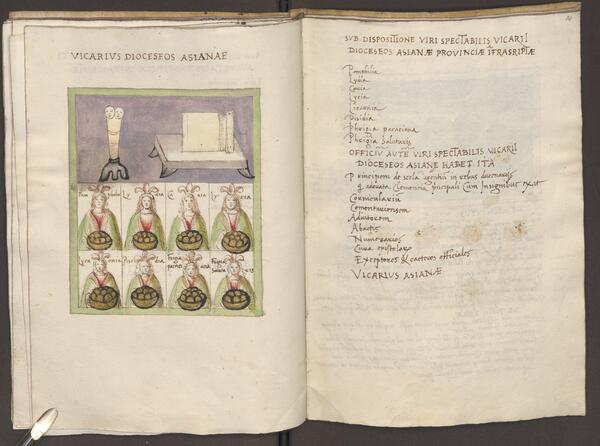 VICARIVS DIOCESEOS ASIANAE
Pam philia
Ly dia
Ca ria
Ly cia
Lyca onia
Pisi dia
Frigia pacati ana
Frigia Salutar is
SVB DISPOSITIONE VIRI SPECTABILIS VICARII
DIOCESEOS ASIANÆ PROVINCIÆ ĪFRASRIPTÆ
Pamphilia
Lydia
Caria
Lycia
Licaonia
Pisidia
Phrigia pacaciana
Phrigia Salutaris
OFFICIV AVTE VIRI SPECTABILIS VICARII
DIOCESEOS ASIANE HABET ITA
Principem de scola agentiū in rebus ducenariis
q adorata Clementia principali Cum Insignibus exit
Cornicularium
Comentariensem
Adiutorem
Abactis
Numerarios
Cura epistolarū
Exceptores & cæteros officiales
VICARIVS ASIANÆ